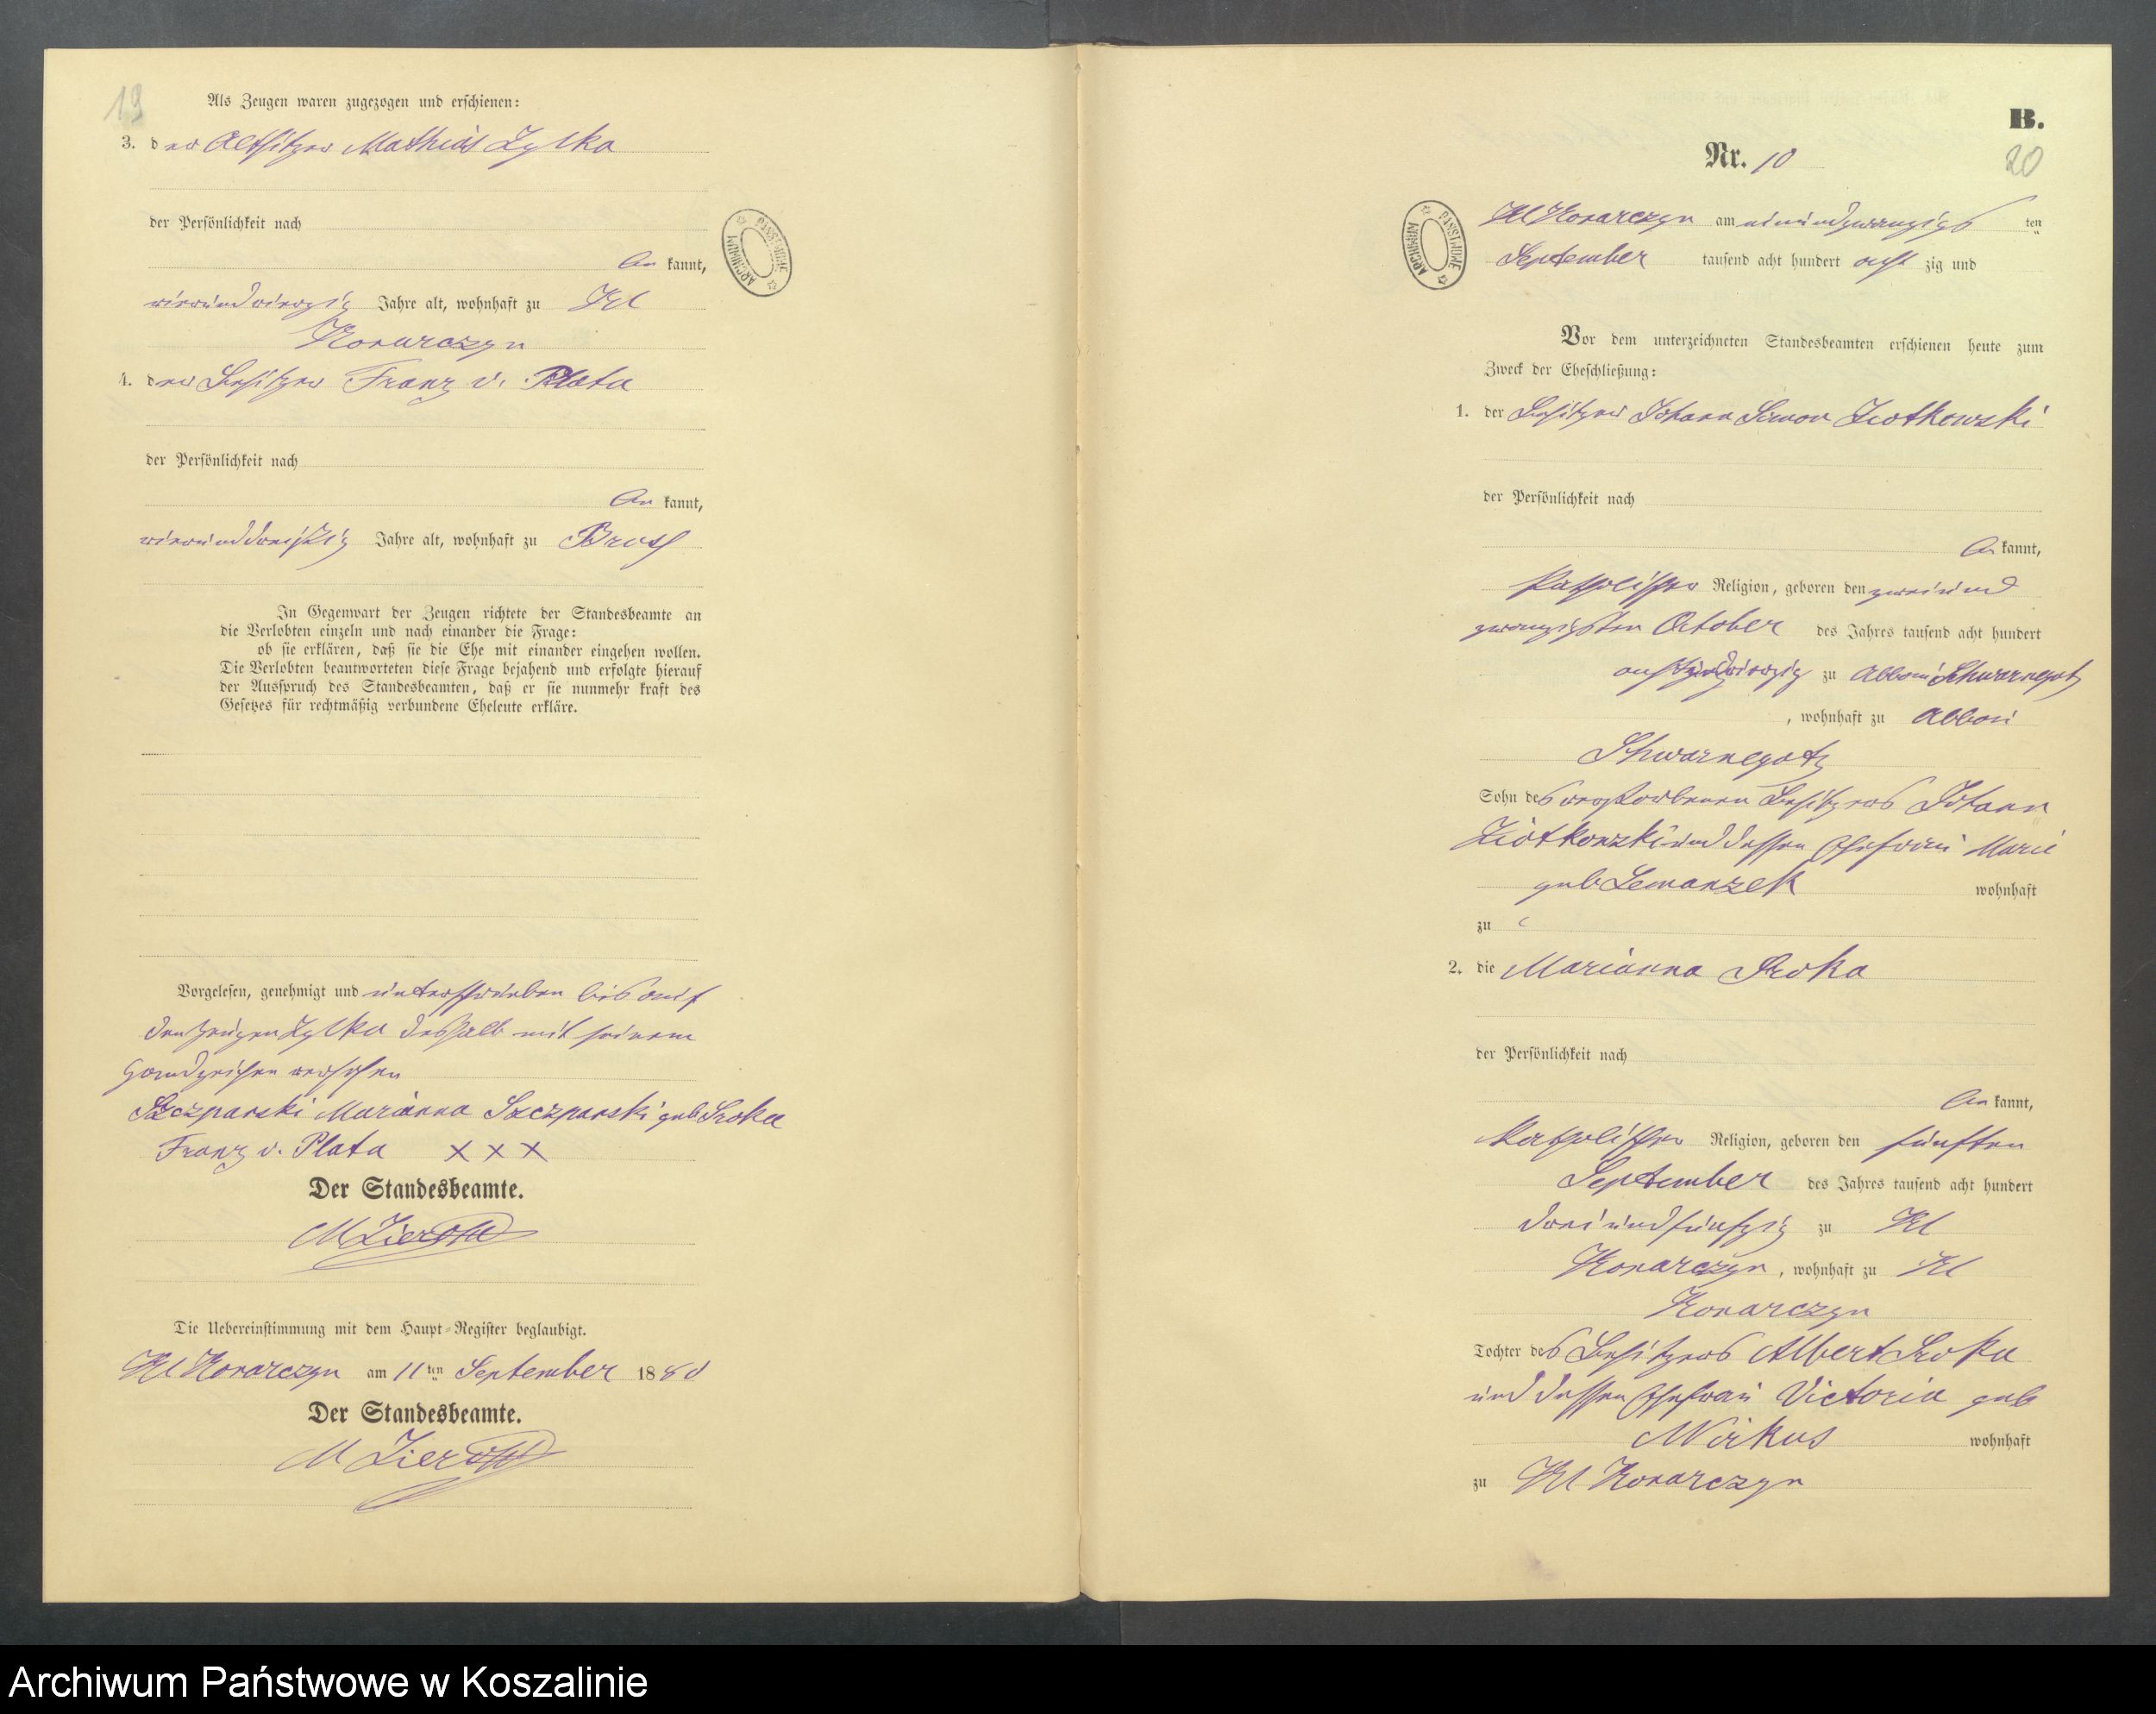 13
Als Zeugen waren zugezogen und erschienen:
3. der Altsitzer Mathias Zylka
der Persönlichkeit nach
be kannt,
vierundvierzig Jahre alt, wohnhaft zu Kl
Konarczyn
4. der Besitzer Franz v. Plata
der Persönlichkeit nach
be kannt,
vierunddreißig Jahre alt, wohnhaft zu
In Gegenwart der Zeugen richtete der Standesbeamte an
die Verlobten einzeln und nach einander die Frage:
ob sie erklären, daß sie die Ehe mit einander eingehen wollen.
Die Verlobten beantworteten diese Frage bejahend und erfolgte hierauf
der Ausspruch des Standesbeamten, daß er sie nunmehr kraft des
Gesetzes für rechtmäßig verbundene Eheleute erkläre.
Vorgelesen, genehmigt und unterschrieben bis auf
den Zeugen Zylka deshalb mit seinem
Handzeichen versehen
Marianna geb Sroka
Franz v. Plata XXX
Der Standesbeamte.
Die Uebereinstimmung mit dem Haupt-Register beglaubigt.
Kl Konarczyn am 11ten September 1880
Der Standesbeamte.
ARCHIWUM PAŃSTWOWE
B.
Nr. 10
20
ARCHIWUM PAŃSTWOWE
Kl Konarczyn am einundzwanzigs ten
September tausend acht hundert acht zig und
Vor dem unterzeichneten Standesbeamten erschienen heute zum
Zweck der Eheschließung:
1. der Besitzer Johann Simon Ziotkowski
der Persönlichkeit nach
be kannt,
katholischer Religion, geboren den zweiund
zwanzigsten October des Jahres tausend acht hundert
achtundvierzig zu Abbau
, wohnhaft zu Abbau
Sohn des verstorbenen Besitzers Johann
Ziotkowski und dessen Ehefrau Marie
geb Lemanzek wohnhaft
zu
2. die Marianna Sroka
der Persönlichkeit nach
be kannt,
katholischer Religion, geboren den fünften
September des Jahres tausend acht hundert
dreiundfünfzig zu Kl
Konarczyn, wohnhaft zu Kl
Konarczyn
Tochter des Besitzers Albert Sroka
und dessen Ehefrau Victoria geb
Wirkus wohnhaft
zu Kl Konarczyn
Archiwum Państwowe w Koszalinie